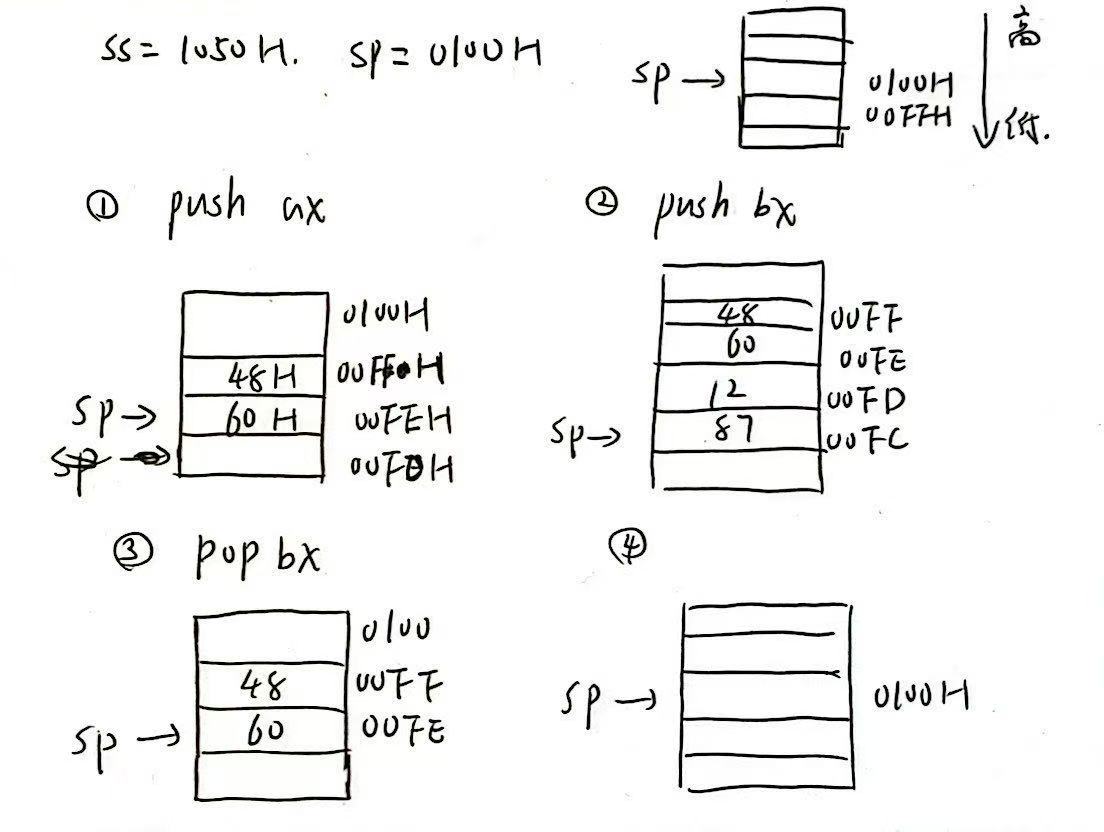 SS=1050H. SP=0100H
高
SP→
0100H
00FFH
低.
① push ax
② push bx
0100H
48H 00FFH
SP→ 60H 00FEH
SP→ 00FDH
48 00FF
60 00FE
12 00FD
SP→ 87 00FC
③ pop bx
④
0100
48 00FF
SP→ 60 00FE
SP→ 0100H